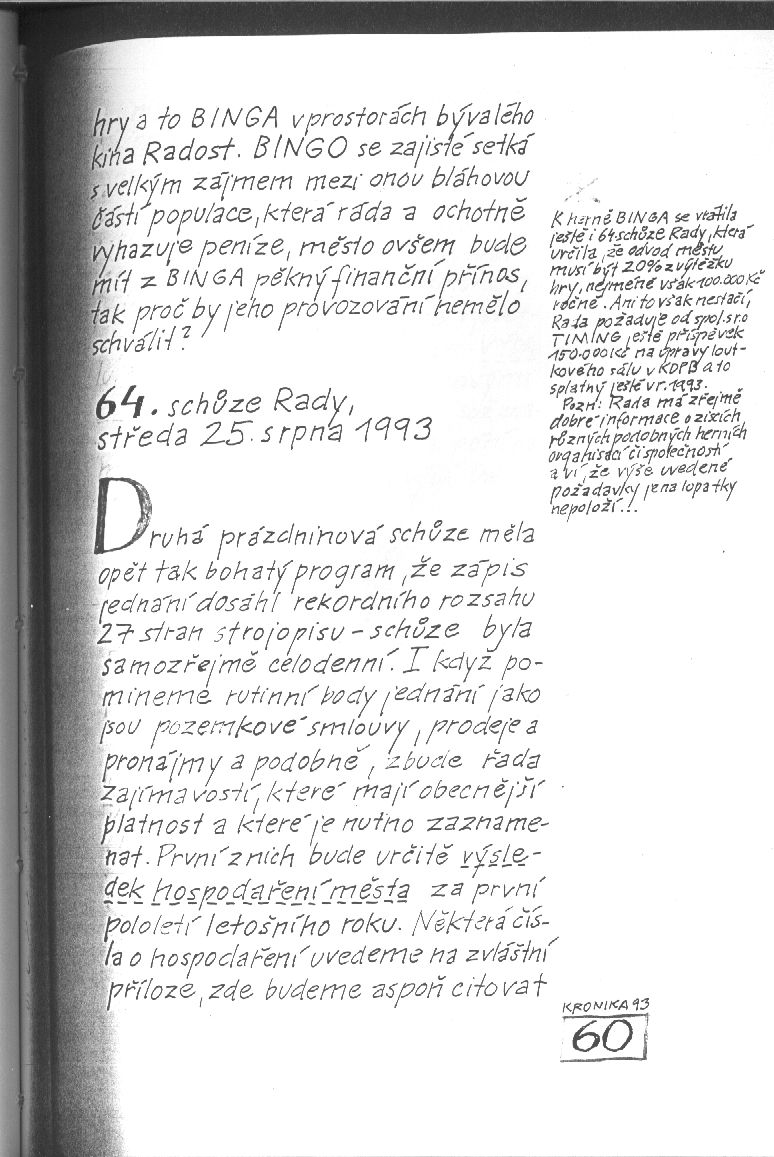 hry a to BINGA v prostorách bývalého
kina Radost. BINGO se zajisté setká
s velkým zájmem mezi onou bláhovou
částí populace, která ráda a ochotně
vyhazuje peníze, město ovšem bude
mít z BINGA pěkný finanční přínos,
tak proč by jeho provozování nemělo
schválit?
64. schůze Rady,
středa 25. srpna 1993
Druhá prázdninová schůze měla
opět tak bohatý program, že zápis
jednání dosáhl rekordního rozsahu
27 stran strojopisu – schůze byla
samozřejmě celodenní. I když po-
mineme rutinní body jednání jako
jsou pozemkové smlouvy, prodeje a
pronájmy a podobně, zbude řada
zajímavostí, které mají obecnější
platnost a které je nutno zazname-
nat. První z nich bude určitě výsle-
dek hospodaření města za první
pololetí letošního roku. Některá čís-
la o hospodaření uvedeme na zvláštní
příloze, zde budeme aspoň citovat
K herně BINGA se vrátila
ještě i 64 schůze Rady, která
určila, že odvod městu
musí být 20% z výtěžku
hry, nejméně však 100.000 Kč
ročně. Ani to však nestačí,
Rada požaduje od spol. s.r.o
TIMING ještě příspěvek
150.000 Kč na úpravy lout-
kového sálu v KDPB a to
splatný ještě v r. 1993.
Pozn: Rada má zřejmě
dobré informace o ziscích
různých podobných herních
organisací či společností
a ví, že výše uvedené
požadavky je na lopatky
nepoloží...
KRONIKA 93
60